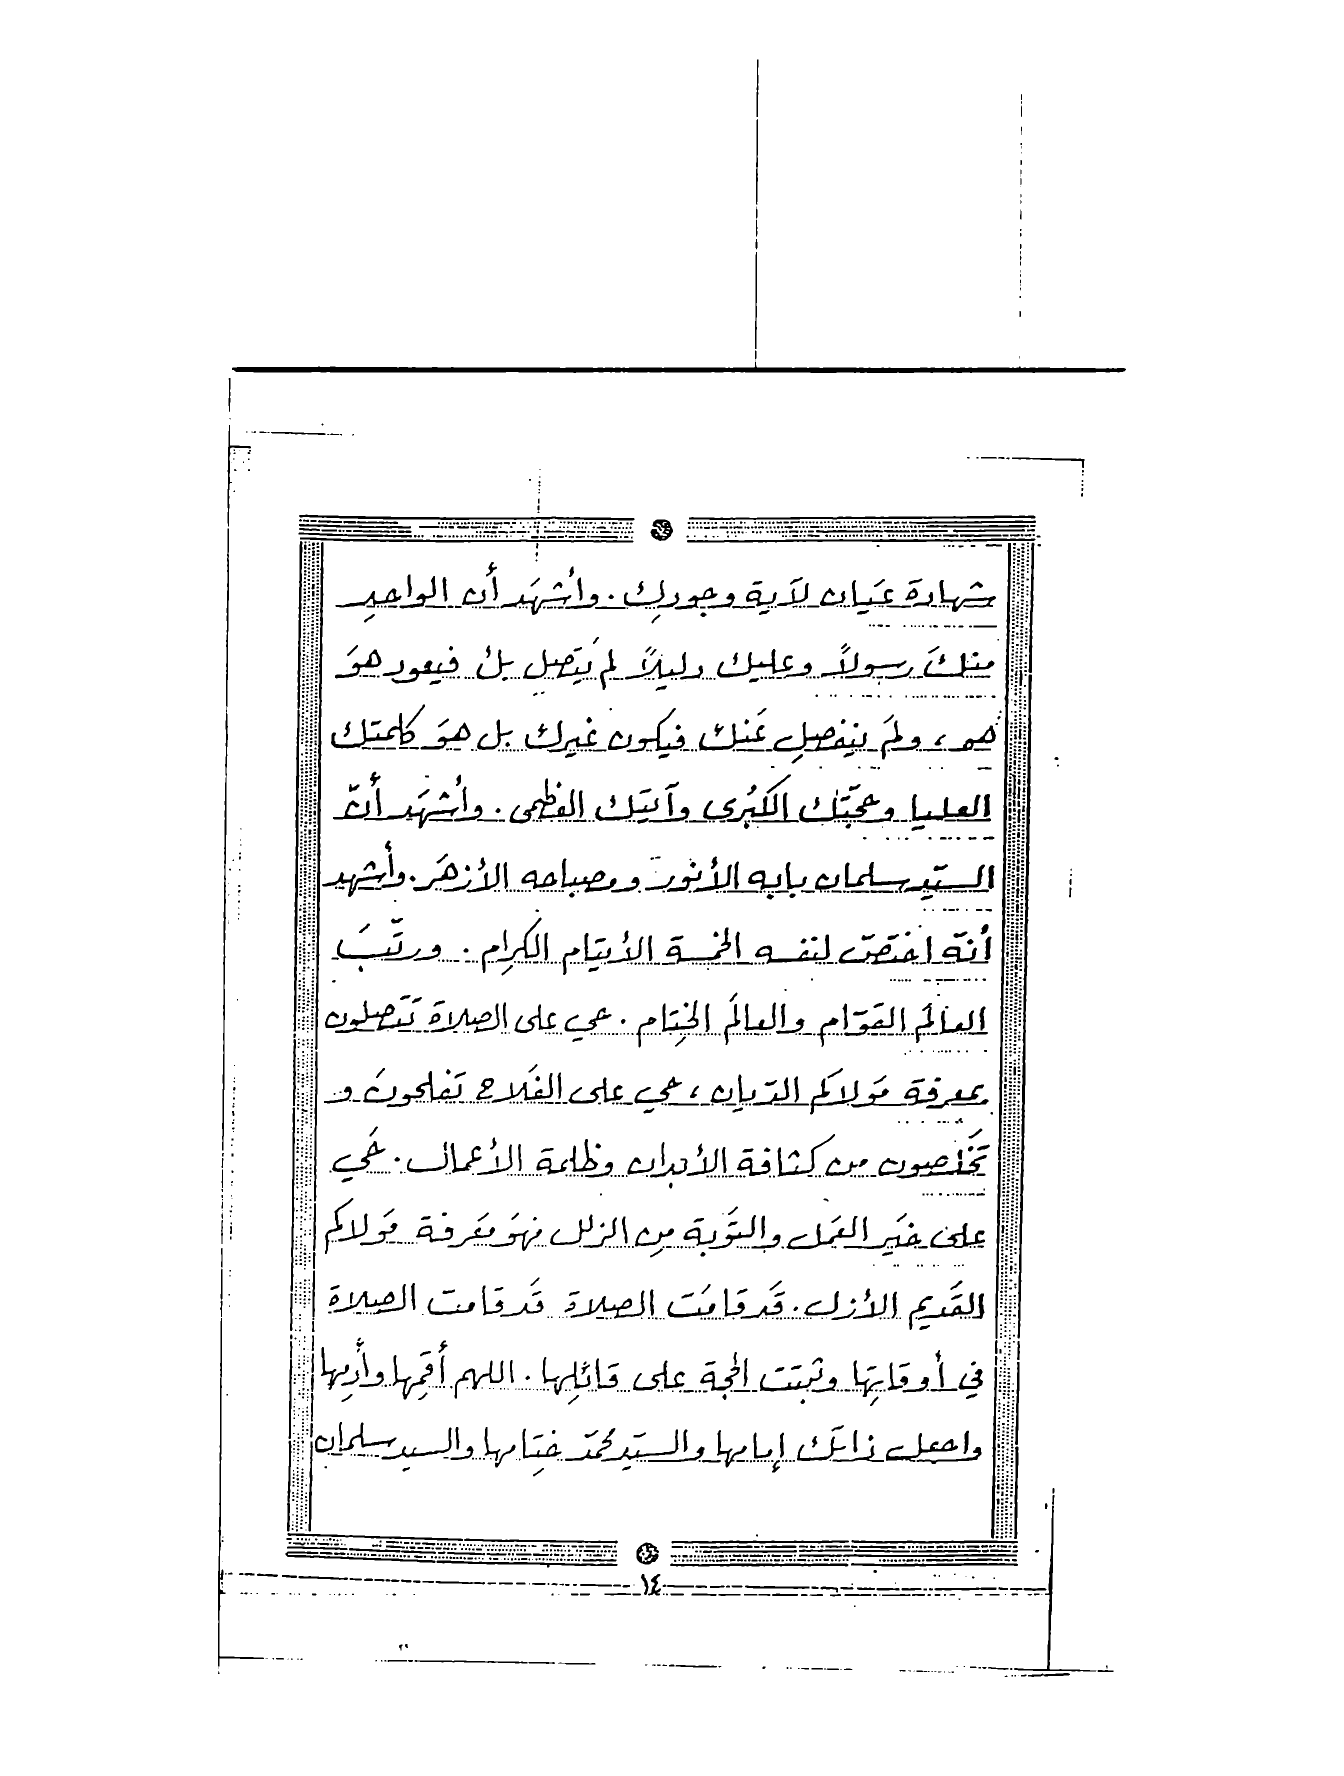 شهادة عَيان لآية وجودك. وأُشهَد أن الواحد
منكَ رسولاً وعليك دليلاً لم يَتَصِل بك فيعود هوَ
هو، ولمَ ينفصِل عَنك فيكون غيرك بل هوَ كلمتك
العليا وحجّتك الكبُرى وآيتك العظمى. وأُشهَد أنّ
السيّد سلمان بابه الأنور ومصباحه الأزهَر. وأشهد
أنّه اختصّ لنفسه الخمسة الأيتام الكرام. ورتّبَ
العالَم القوّام والعالَم الخِتام. حي على الصلاة تَتَصلون
بمعرفة مَولاكم الديّان، حَي على الفَلاح تَفلحونَ و
تَخَلصون من كثافة الأبدان وظلمة الأعمال. حَي
على خَير العَمل والتَوبة مِن الزلل فهوَ مَعرفة مَولاكم
القَديم الأزل. قَد قامَت الصلاة قَد قامت الصلاة
في أوقاتِها وثبتَت الحجة على قائلِها. اللهم أقِمها وأدِمها
واجعل ذاتَك إمامها والسيّد محمّد خِتامها والسيد سلمان
١٤